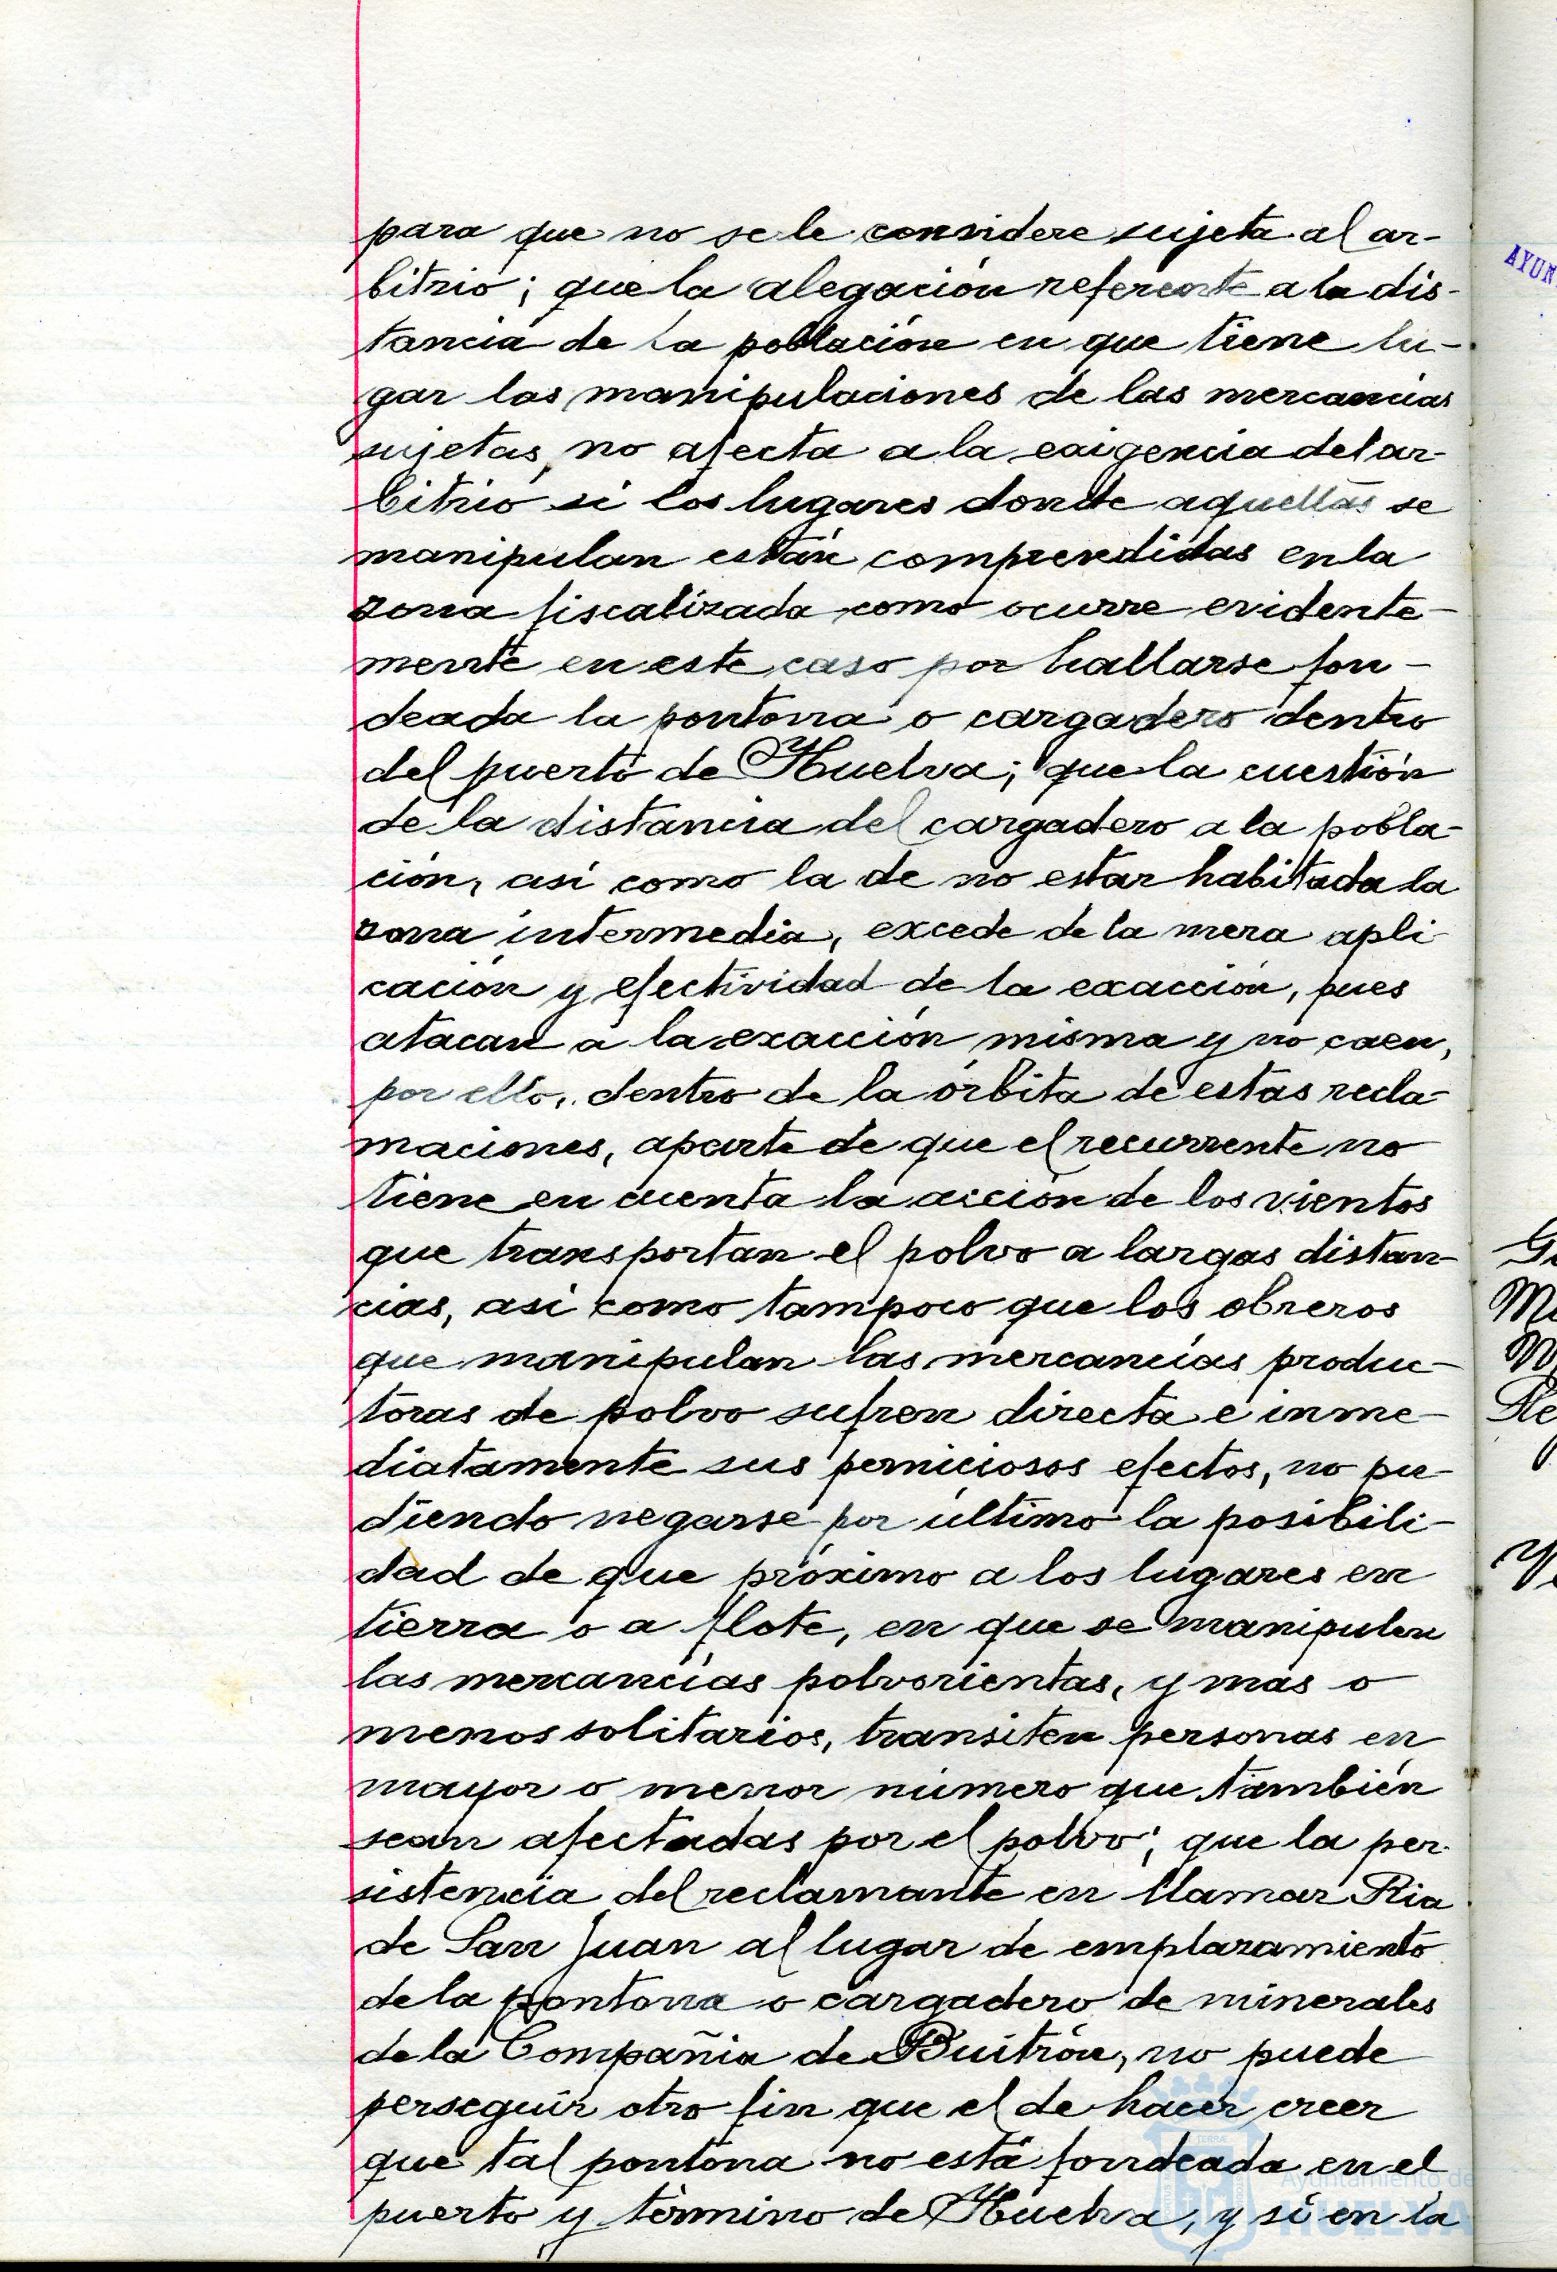 para que no se le considere sujeta al ar-
bitrio; que la alegación referente a la dis-
tancia de la población en que tiene lu-
gar las manipulaciones de las mercancías
sujetas, no afecta a la exigencia del ar-
bitrio si los lugares donde aquellas se
manipulan están comprendidas en la
zona fiscalizada como ocurre evidente-
mente en este caso por hallarse fon-
deada la pontona o cargadero dentro
del puerto de Huelva; que la cuestión
de la distancia del cargadero a la pobla-
ción, así como la de no estar habitada la
zona intermedia, excede de la mera apli-
cación y efectividad de la exacción, pues
atacan a la exacción misma y no caen,
por ello, dentro de la órbita de estas recla-
maciones, aparte de que el recurrente no
tiene en cuenta la acción de los vientos
que transportan el polvo a largas distan-
cias, así como tampoco que los obreros
que manipulan las mercancías produc-
toras de polvo sufren directa e inme-
diatamente sus perniciosos efectos, no pu-
diendo negarse por último la posibili-
dad de que próximo a los lugares en
tierra o a flote, en que se manipulen
las mercancías polvorientas, y más o
menos solitarios, transiten personas en
mayor o menor número que también
sean afectadas por el polvo; que la per-
sistencia del reclamante en llamar Ria
de San Juan al lugar de emplazamiento
de la pontona o cargadero de minerales
de la Compañía de Buitrón, no puede
perseguir otro fin que el de hacer creer
que tal pontona no está fondeada en el
puerto y término de Huelva, y sí en la
Ayuntamiento de
HUELVA
AYUN